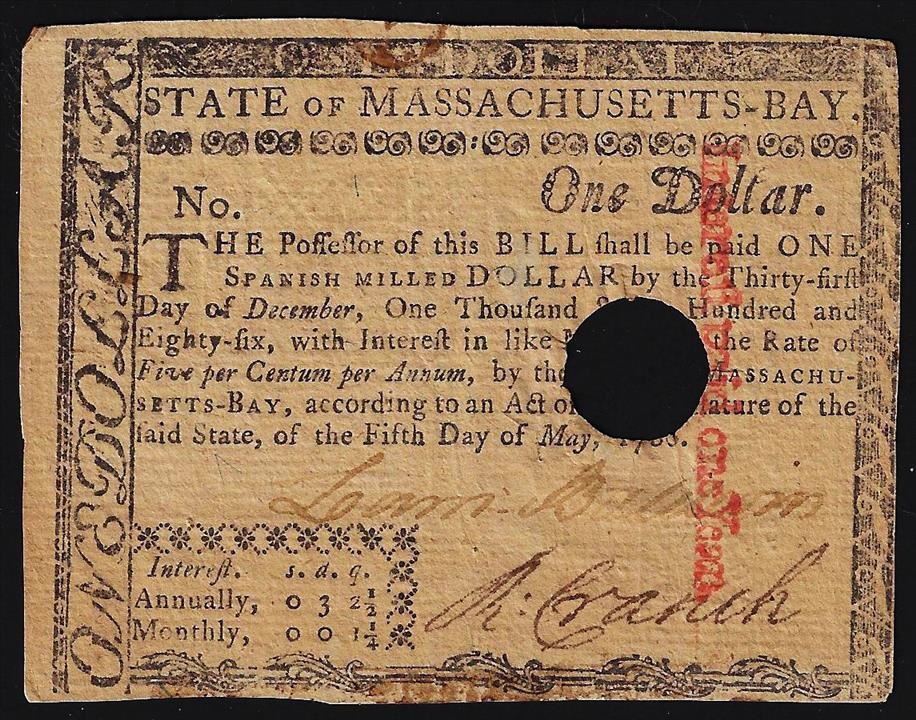 ONE DOLLAR
STATE OF MASSACHUSETTS-BAY.
No. One Dollar.
THE Poſſeſſor of this BILL ſhall be paid ONE
SPANISH MILLED DOLLAR by the Thirty-firſt
Day of December, One Thouſand Hundred and
Eighty-ſix, with Intereſt in like the Rate of
Five per Centum per Annum, by the MASSACHU-
SETTS-BAY, according to an Act of ature of the
ſaid State, of the Fifth Day of May, 1780.
R: Cranch
Intereſt. s. d. q.
Annually, 0 3 2½
Monthly, 0 0 1¼
ONE DOLLAR
Intereſt paid one Year